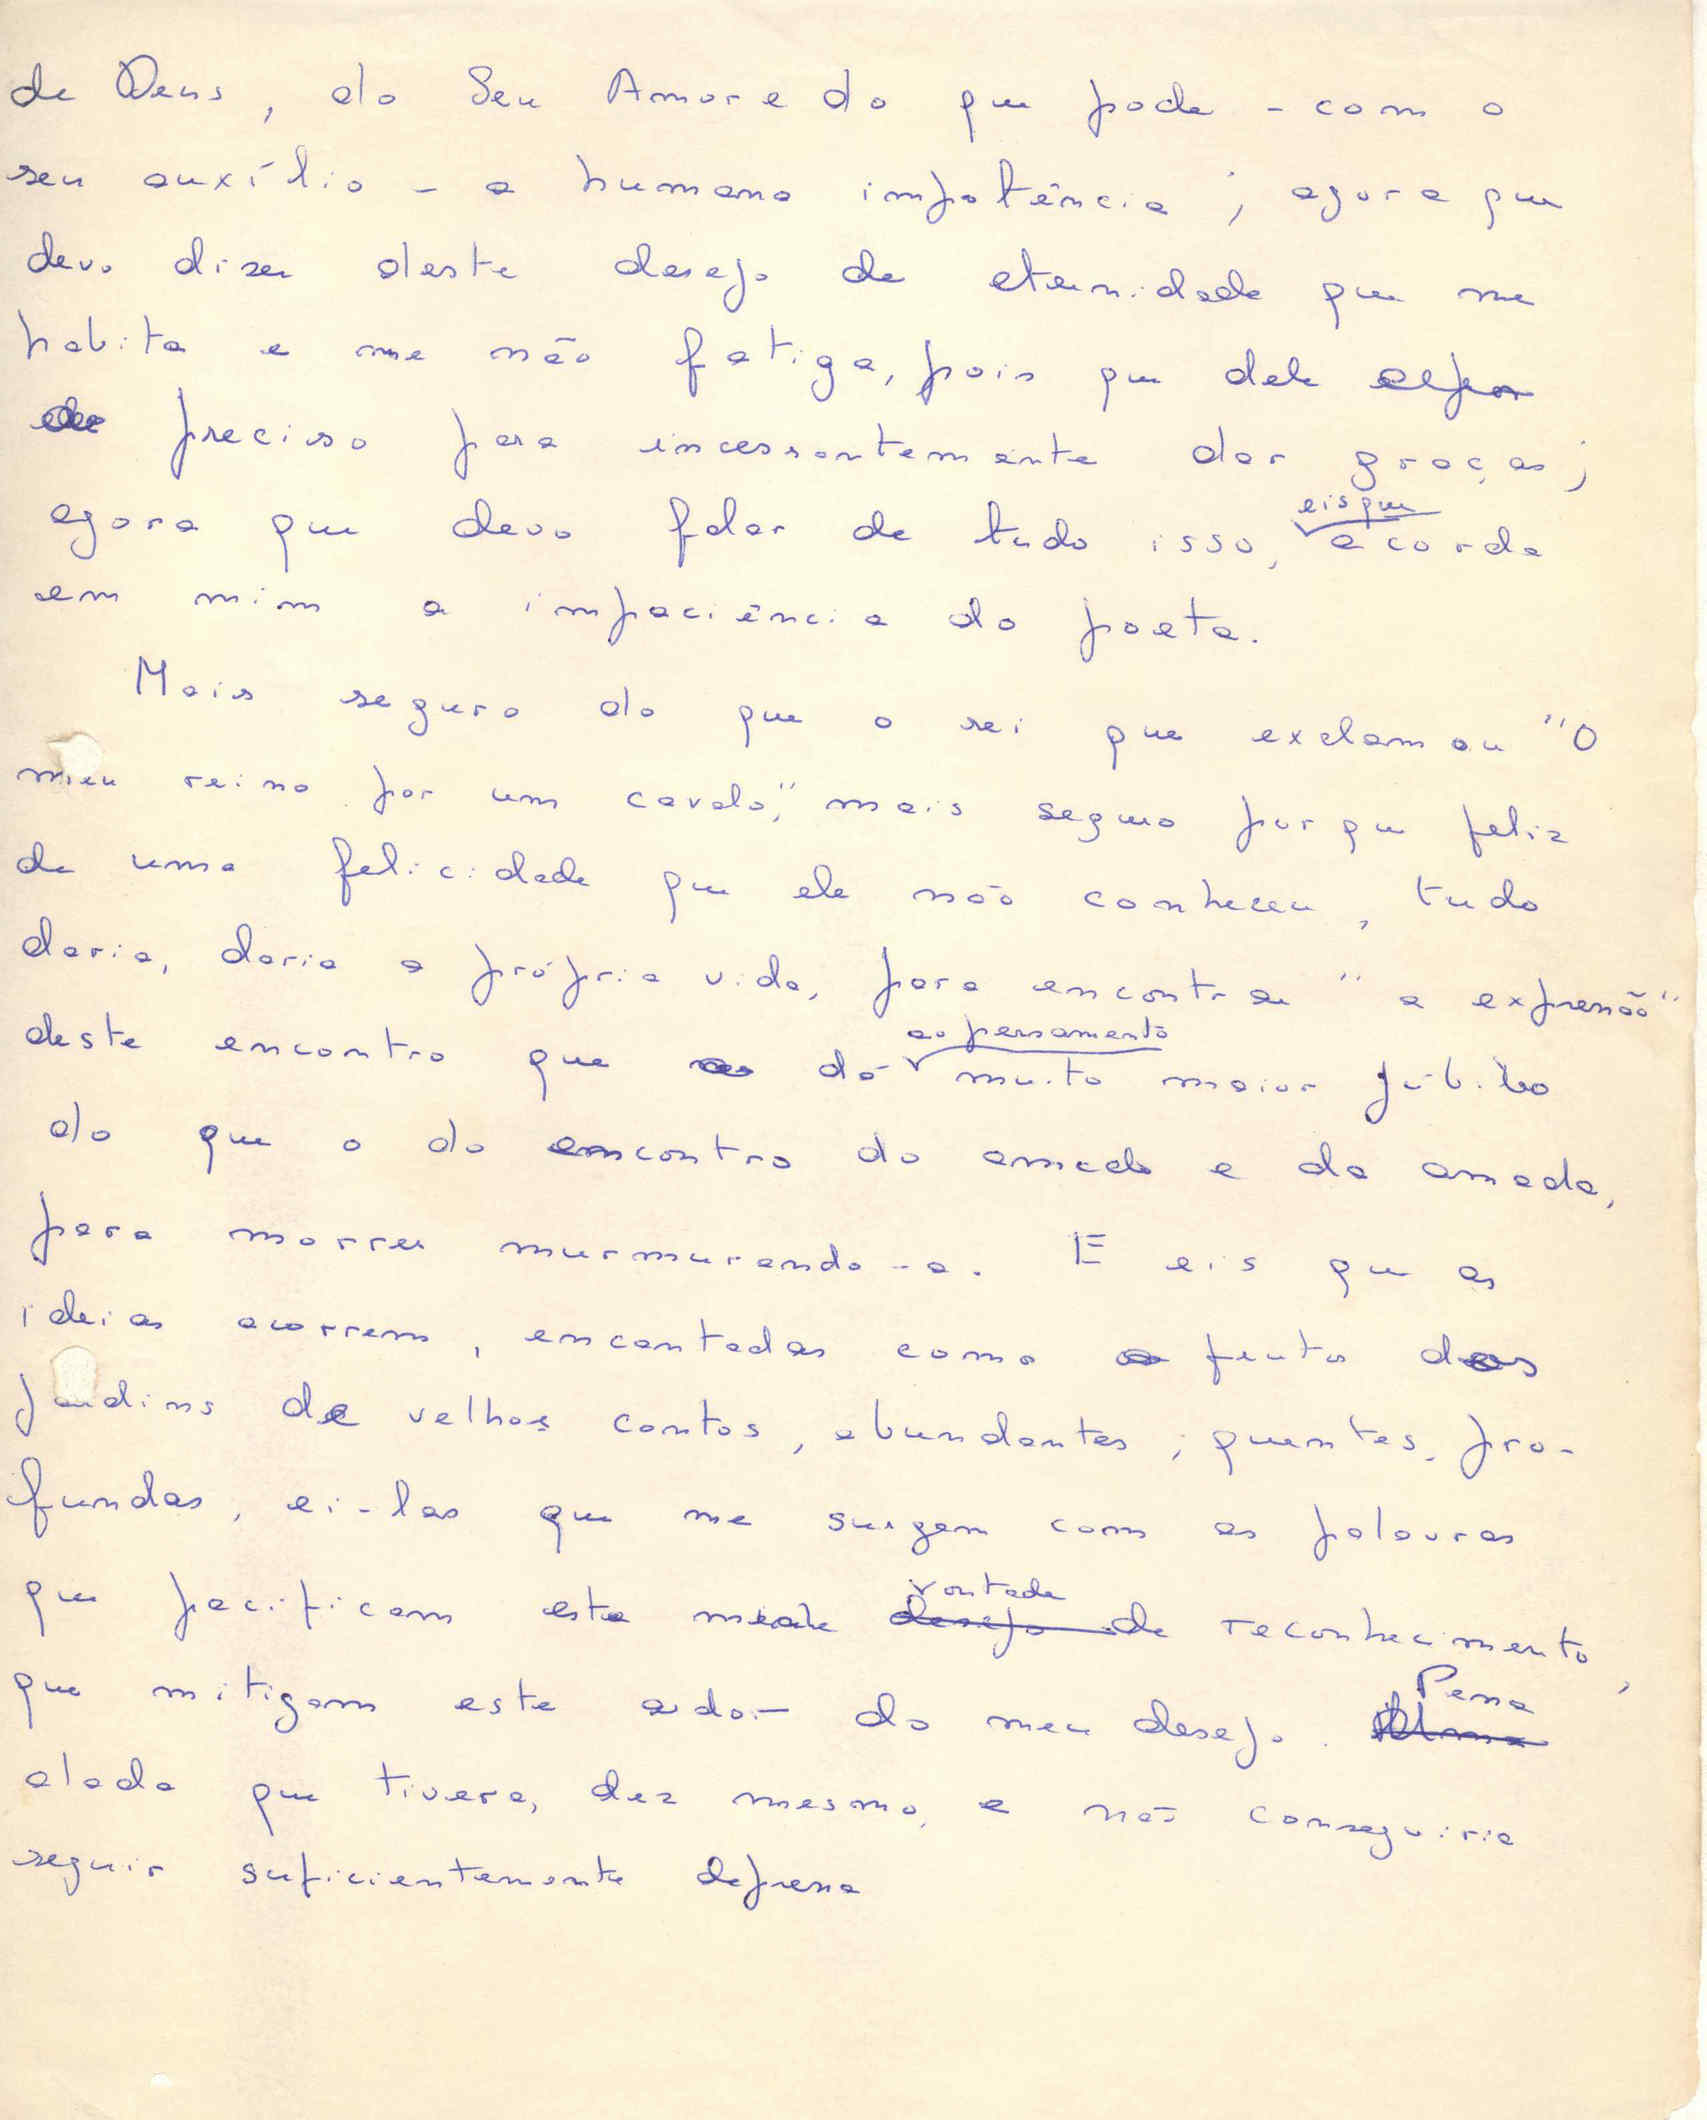 de Deus, do Seu Amor e do que pode - com o
seu auxílio - a humana impotência; agora que
devo dizer deste desejo de eternidade que me
habita e me não fatiga, pois que dele
preciso para incessantemente dar graças;
agora que devo falar de tudo isso, eis que acorda
em mim a impaciência do poeta.
Mais seguro do que o rei que exclamou "O
meu reino por um cavalo", mais seguro porque feliz
de uma felicidade que ele não conheceu, tudo
daria, daria a própria vida, para encontrar "a expressão"
deste encontro que dá ao pensamento muito maior júbilo
do que o do encontro do amado e da amada,
para morrer murmurando-a. E eis que as
ideias acorrem, encantadas como frutos dos
jardins de velhos contos, abundantes, quentes, pro-
fundas, ei-las que me surgem com as palavras
que pacificam esta vontade de reconhecimento,
que mitigam este ardor do meu desejo. Pena
alada que tivera, dez mesmo, e não conseguiria
seguir suficientemente depressa